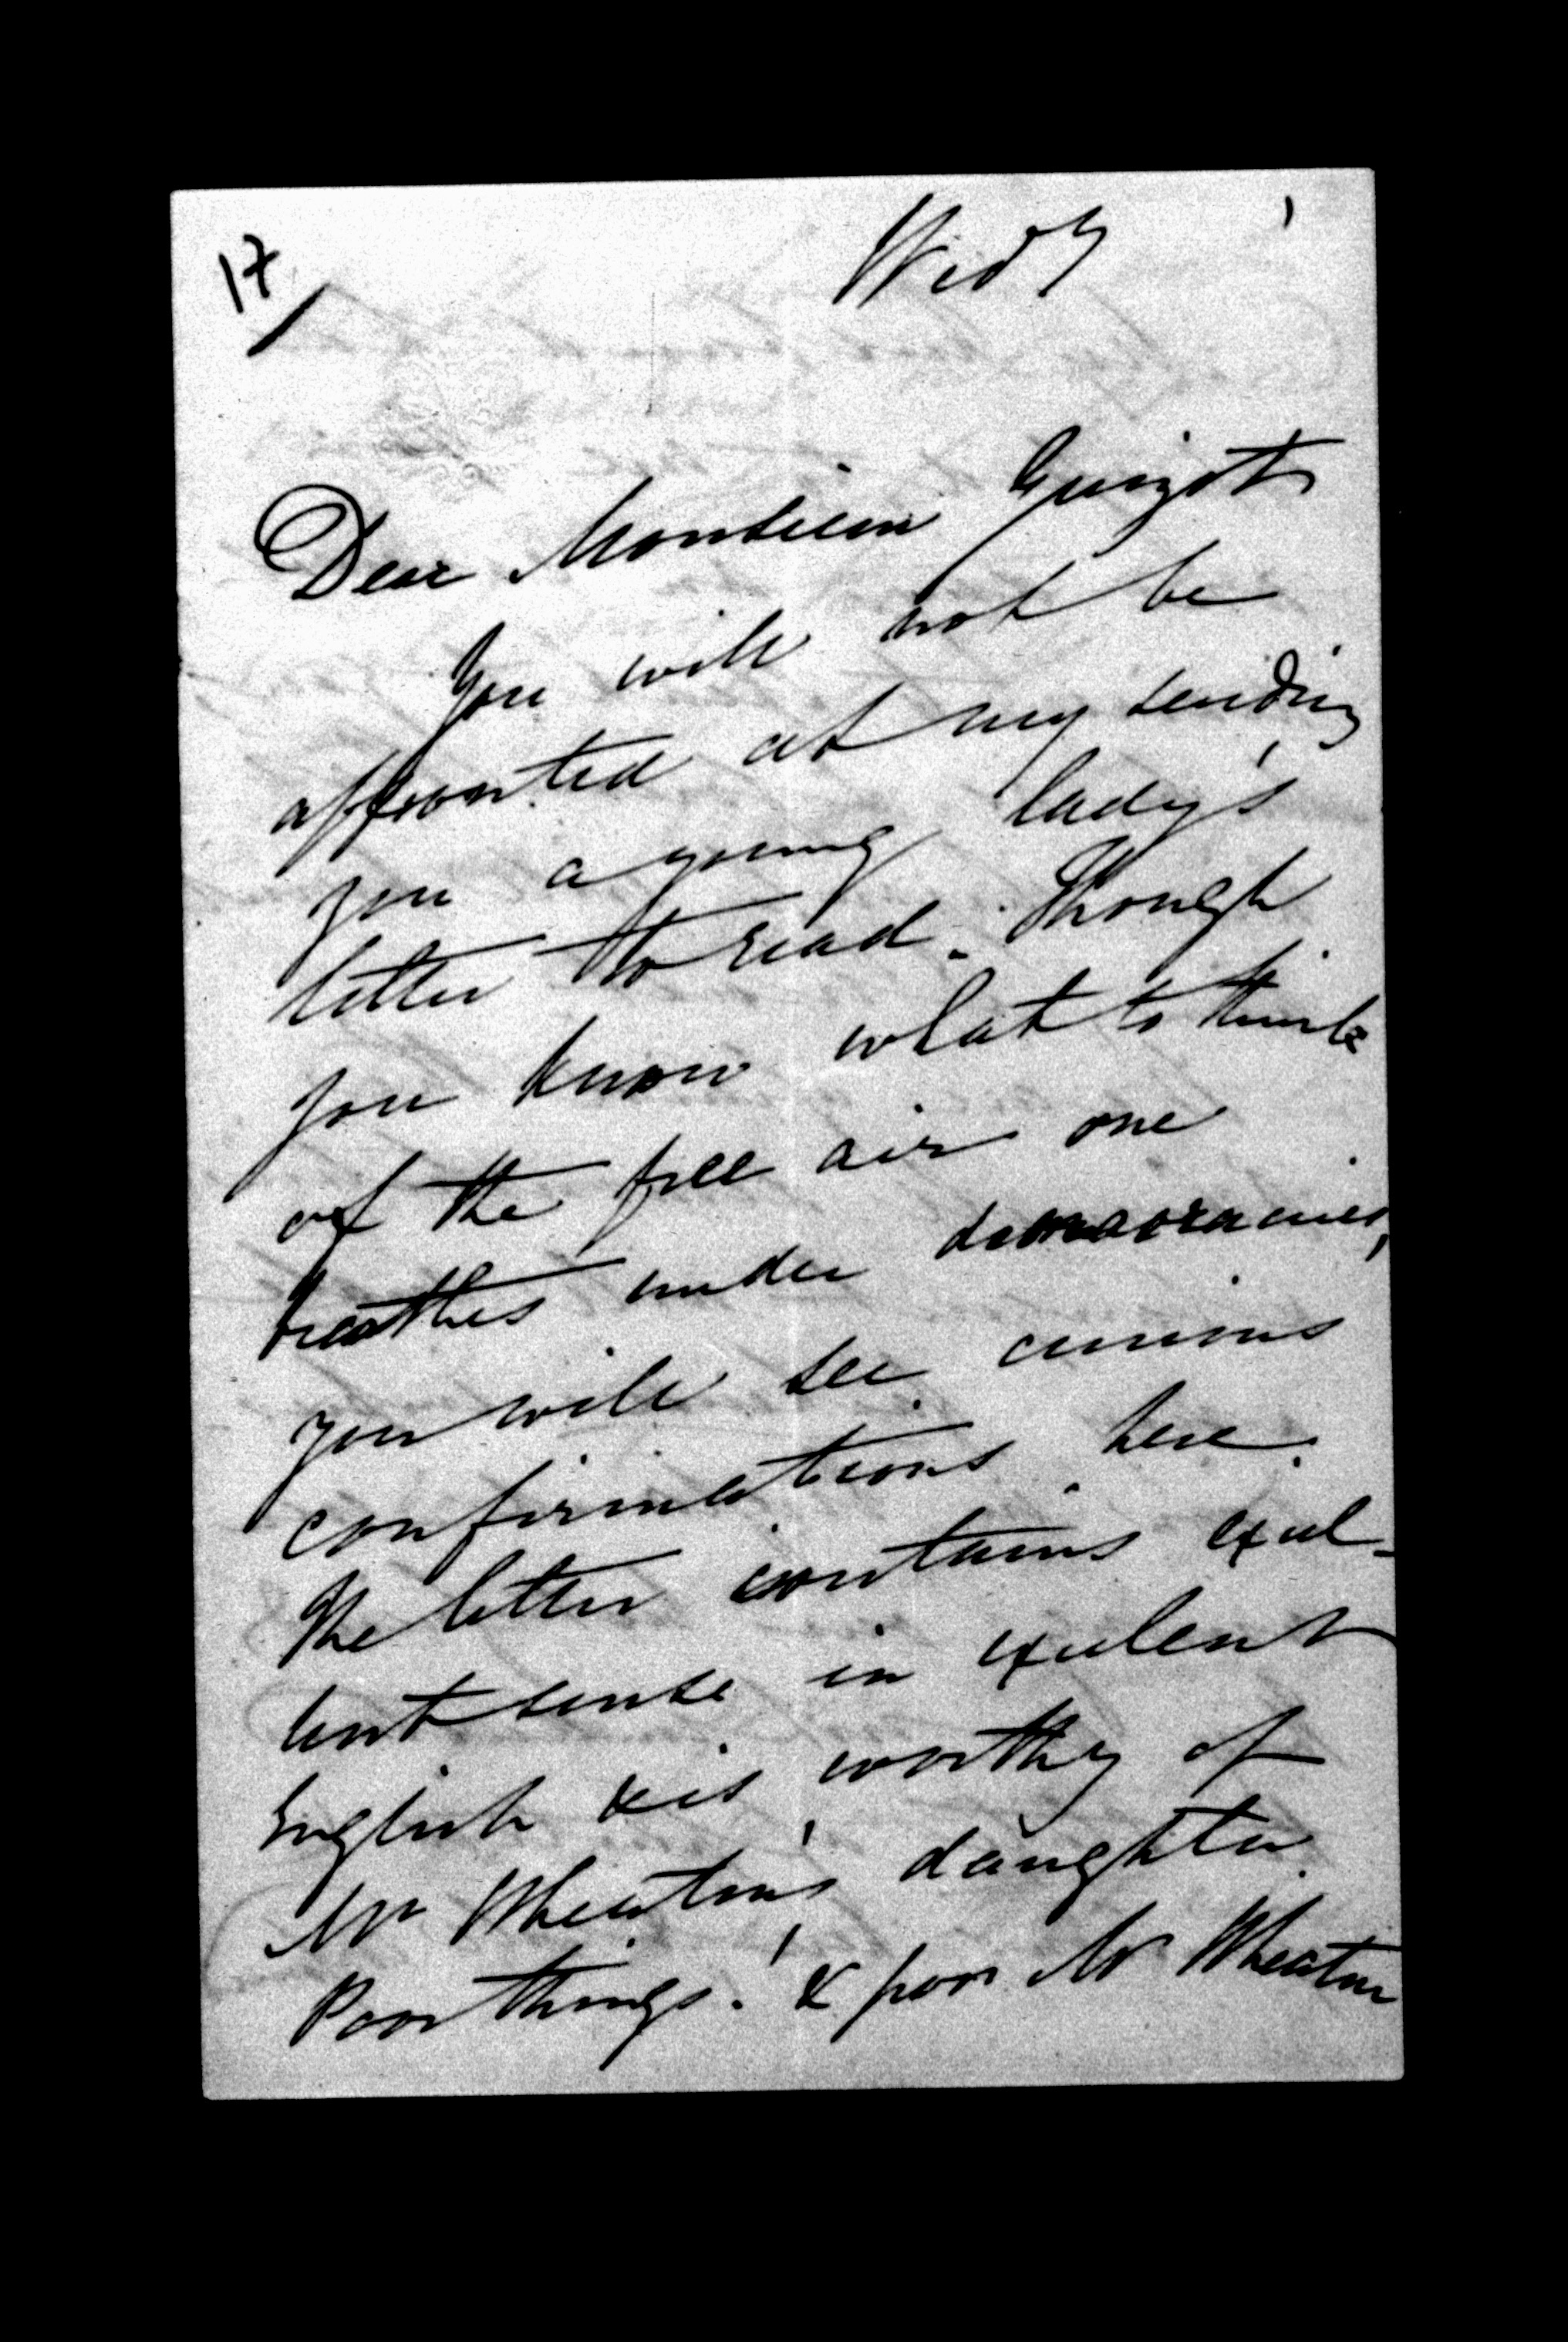 17/
Wedy
Dear Monsieur Guizot
You will not be
affronted at my sending
you a young lady's
letter to read. Though
you know what to think
of the free air one
breathes under democracies,
you will see curious
confirmations here.
The letter contains exul-
lent sense in exulent
English & is worthy of
Mr Wheaton's daughter.
Poor things! & poor Mr Wheaton